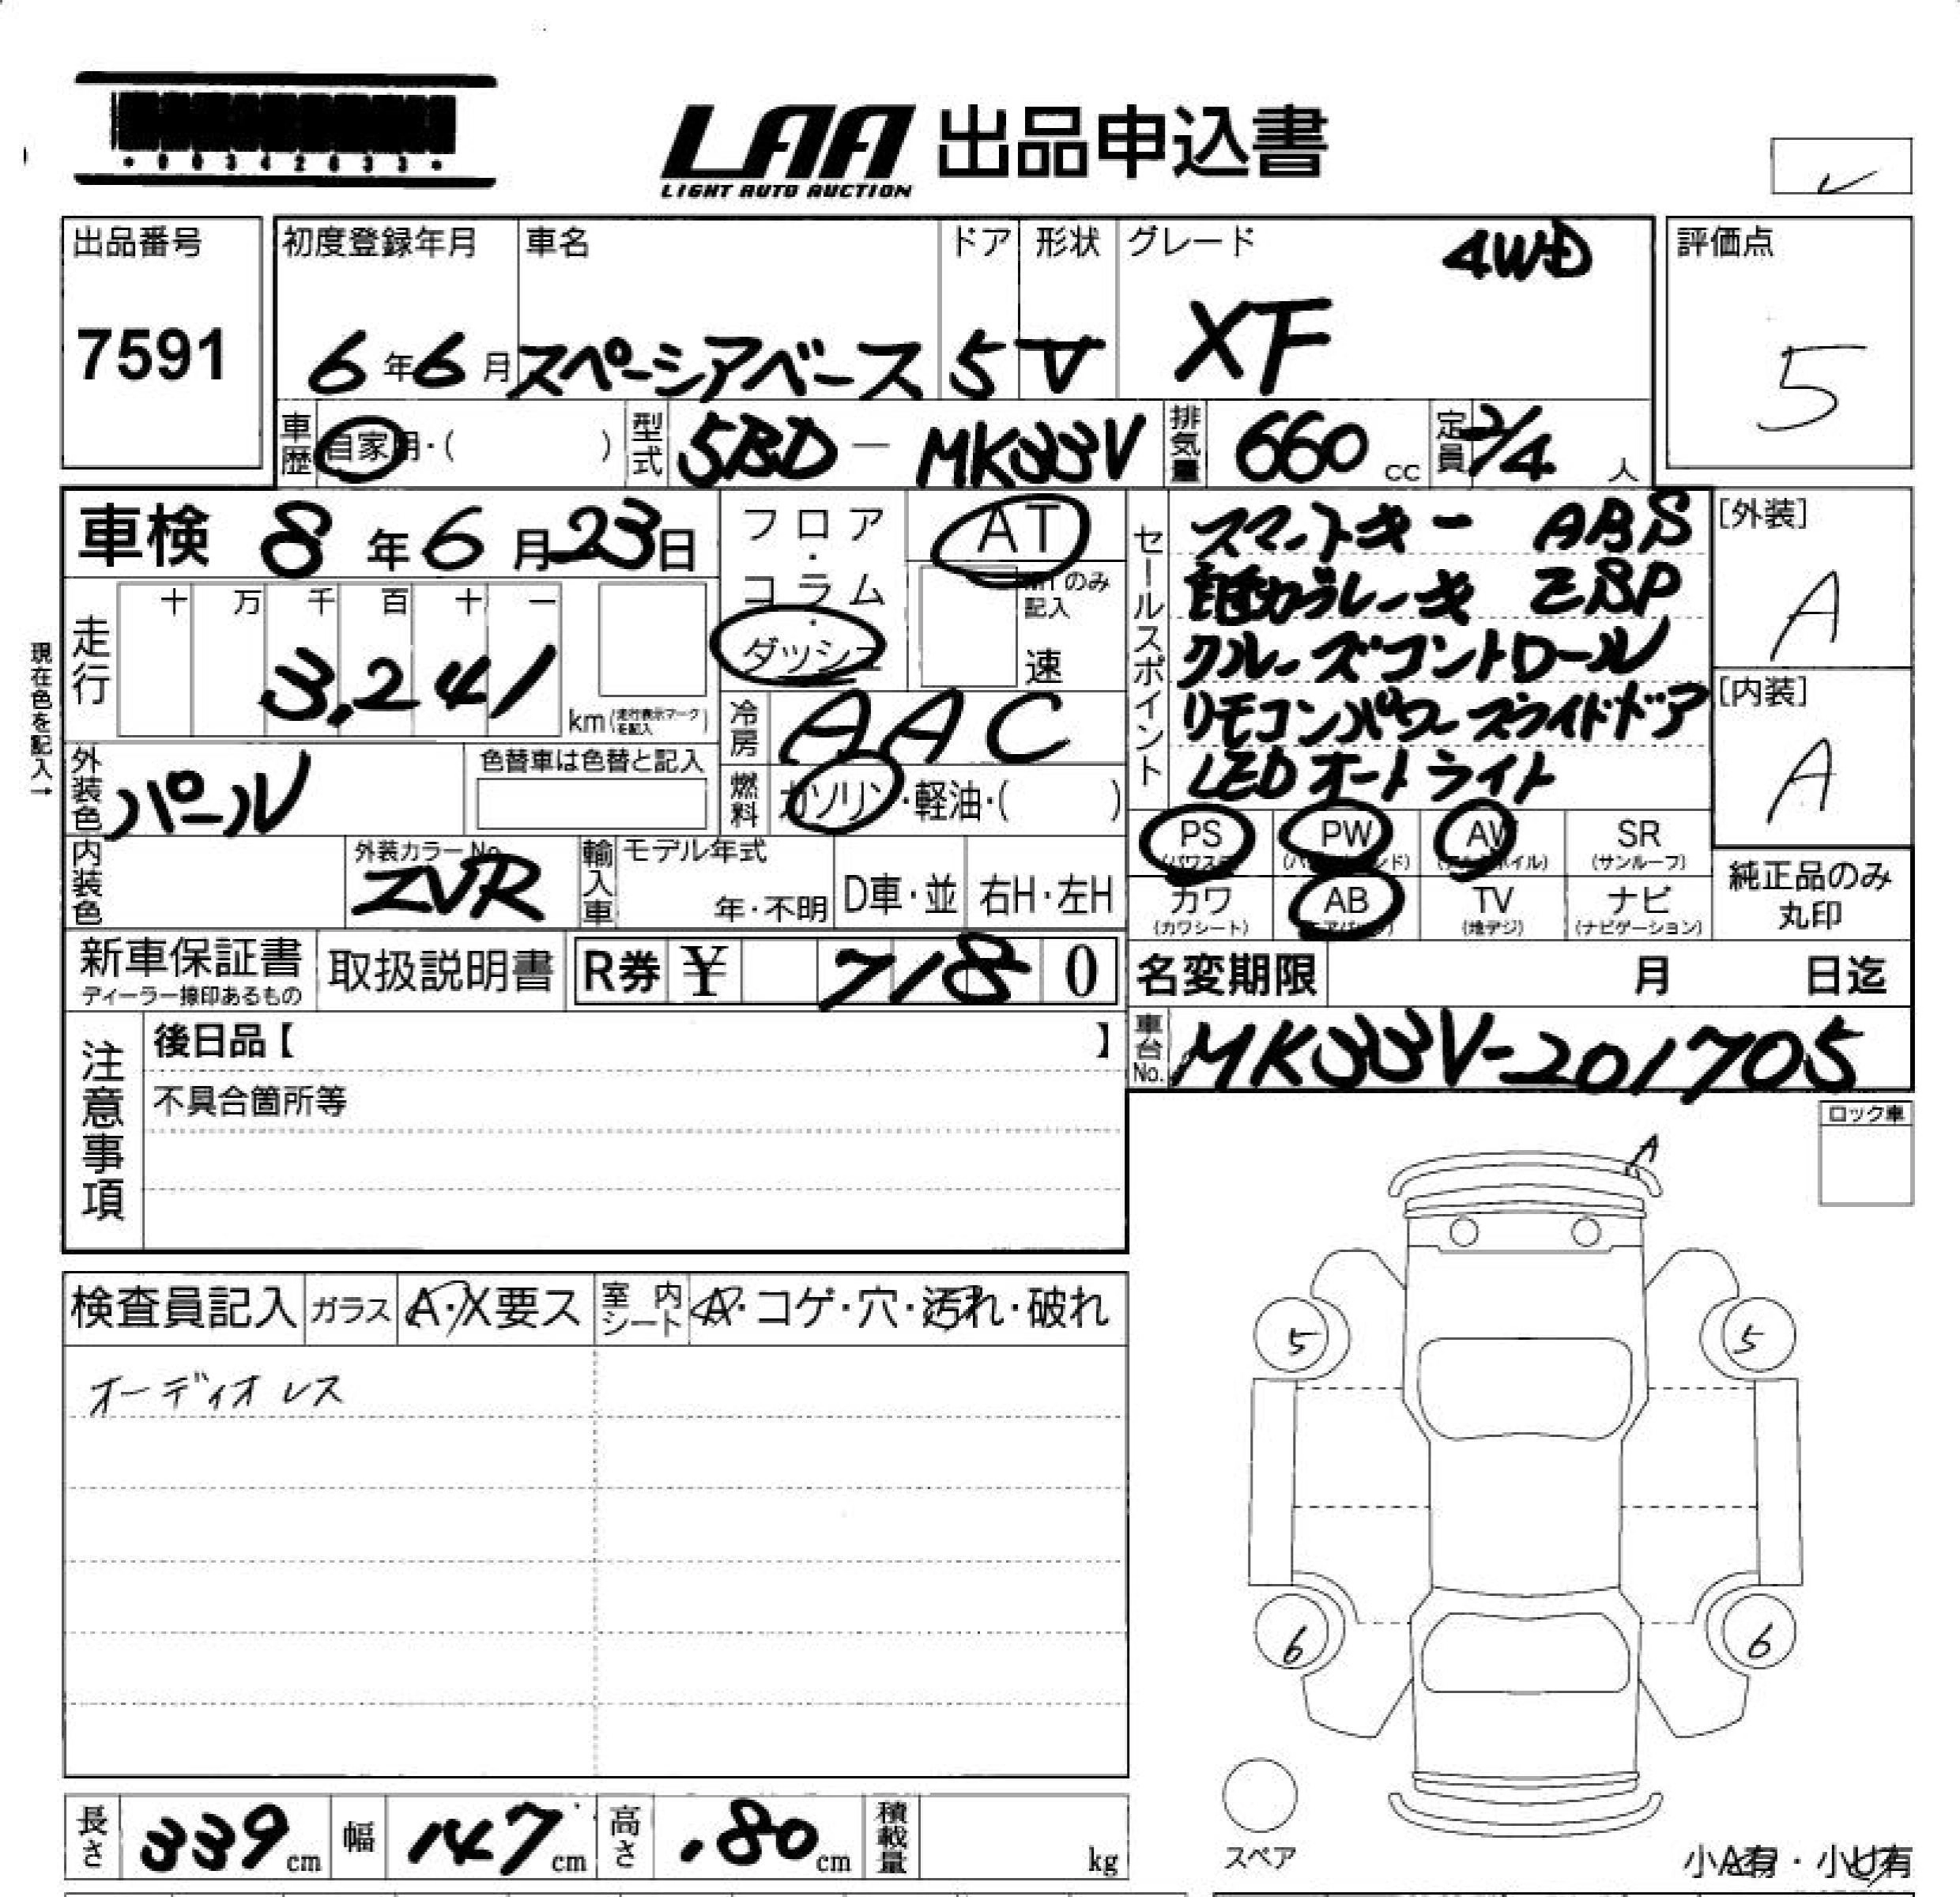 ・00342633・
LAA 出品申込書
LIGHT AUTO AUCTION
出品番号 初度登録年月 車名 ドア 形状 グレード 4WD 評価点
7591 6年6月 スペーシアベース 5 V XF 5
車歴 自家用・( ) 型式 5BD - MK33V 排気量 660 cc 定員 2/4 人
車検 8年6月23日
フロア・コラム・ダッシュ AT
MTのみ記入 速
セールスポイント
スマートキー ABS
自動ブレーキ ESP
クルーズコントロール
リモコンパワースライドドア
LEDオートライト
[外装]
A
[内装]
A
現在色を記入→
走行 十 万 千 百 十 一
3,241 km(走行表示マークを記入)
冷房 AAC
外装色 パール 色替車は色替と記入
燃料 ガソリン・軽油・( )
内装色 外装カラーNo. ZVR
輸入車 モデル年式 年・不明 D車・並 右H・左H
PS (パワステ) PW (パワーウインド) AW (アルミホイル) SR (サンルーフ)
カワ (カワシート) AB (エアバック) TV (地デジ) ナビ (ナビゲーション)
純正品のみ
丸印
新車保証書 ディーラー捺印あるもの 取扱説明書 R券 ¥ 718 0
名変期限 月 日迄
車台No. MK33V-201705
注意事項
後日品【 】
不具合箇所等
ロック車
A
検査員記入 ガラス A・X要ス 室内シート A・コゲ・穴・汚れ・破れ
オーディオレス
5 5
6 6
スペア
小A有・小U有
長さ 339 cm 幅 147 cm 高さ .80 cm 積載量 kg